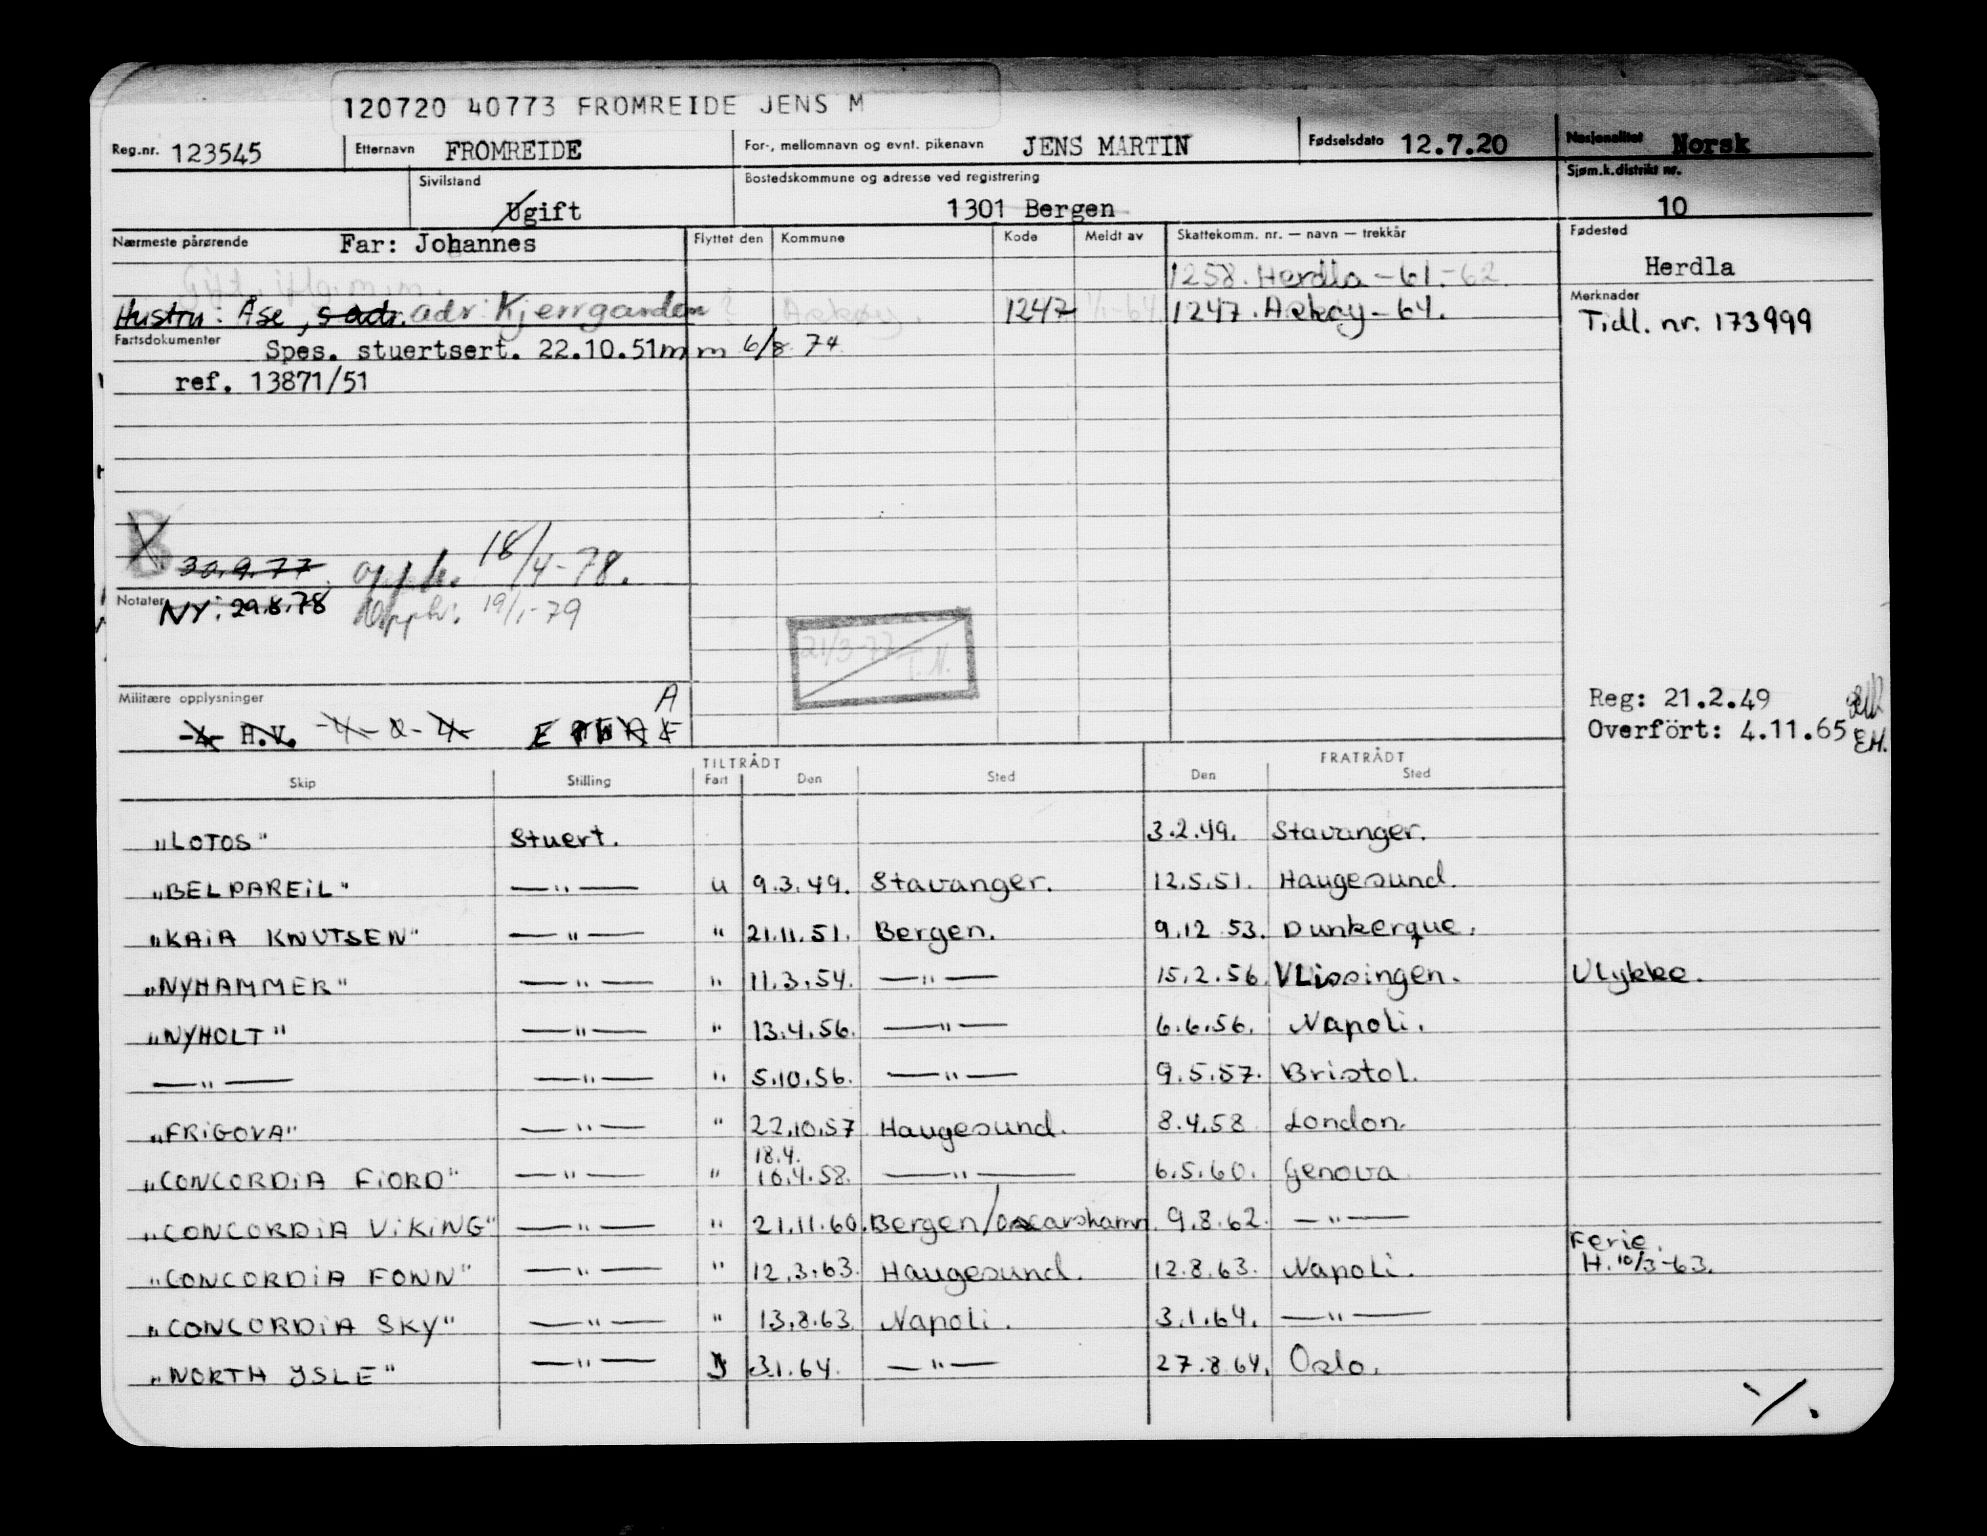 120720 40773 FROMREIDE JENS M
Reg.nr. 123545 Etternavn FROMREIDE For-, mellomnavn og evnt. pikenavn JENS MARTIN Fødselsdato 12.7.20 Nasjonalitet Norsk
Sivilstand Ugift Bostedskommune og adresse ved registrering 1301 Bergen Sjøm.k.distrikt nr. 10
Nærmeste pårørende Far: Johannes Flyttet den Kommune Kode Meldt av Skattekomm. nr. — navn — trekkår Fødested
Gift 1258. Herdla - 61.-62. Herdla
Hustru: Åse, s adr. adr. Kjerrgarden Askøy. 1247 1/1-64 1247. Askøy - 64. Merknader
Tidl. nr. 173999
Fartsdokumenter Spes. stuertsert. 22.10.51 m m 6/8 74
ref. 13871/51
B 30.9.77. opph. 18/4-78.
Notater NY: 29.8.78 Opph: 19/1-79
21/3-77 T.N.
Militære opplysninger A
-4- H.V. -4- & -4- Reg: 21.2.49
Overfört: 4.11.65 EH.
TILTRÅDT FRATRÅDT
Skip Stilling Fart Den Sted Den Sted
"LOTOS" Stuert. 3.2.49. Stavanger.
"BELPAREIL" —"— u 9.3.49. Stavanger. 12.5.51. Haugesund.
"KAIA KNUTSEN" —"— " 21.11.51. Bergen. 9.12 53. Dunkerque.
"NYHAMMER" —"— " 11.3.54. —"— 15.2.56. Vlissingen. Ulykke.
"NYHOLT" —"— " 13.4.56. —"— 6.6.56. Napoli.
—"— —"— " 5.10.56. —"— 9.5.57. Bristol.
"FRIGOVA" —"— " 22.10.57 Haugesund. 8.4.58 London.
18.4.
"CONCORDIA FJORD" —"— " 16.4.58. —"— 6.5.60. Genova
"CONCORDIA VIKING" —"— " 21.11.60. Bergen/Oscarshamn. 9.8.62. —"—
Ferie.
"CONCORDIA FONN" —"— " 12.3.63. Haugesund. 12.8.63. Napoli. H. 10/3-63.
"CONCORDIA SKY" —"— " 13.8.63. Napoli. 3.1.64. —"—
"NORTH YSLE" —"— 3.1.64. —"— 27.8.64. Oslo.